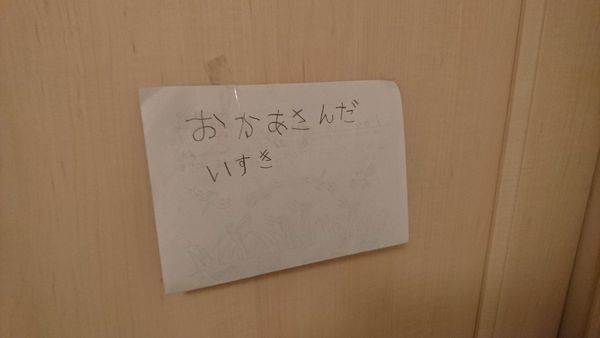 おかあさんだ
いすき